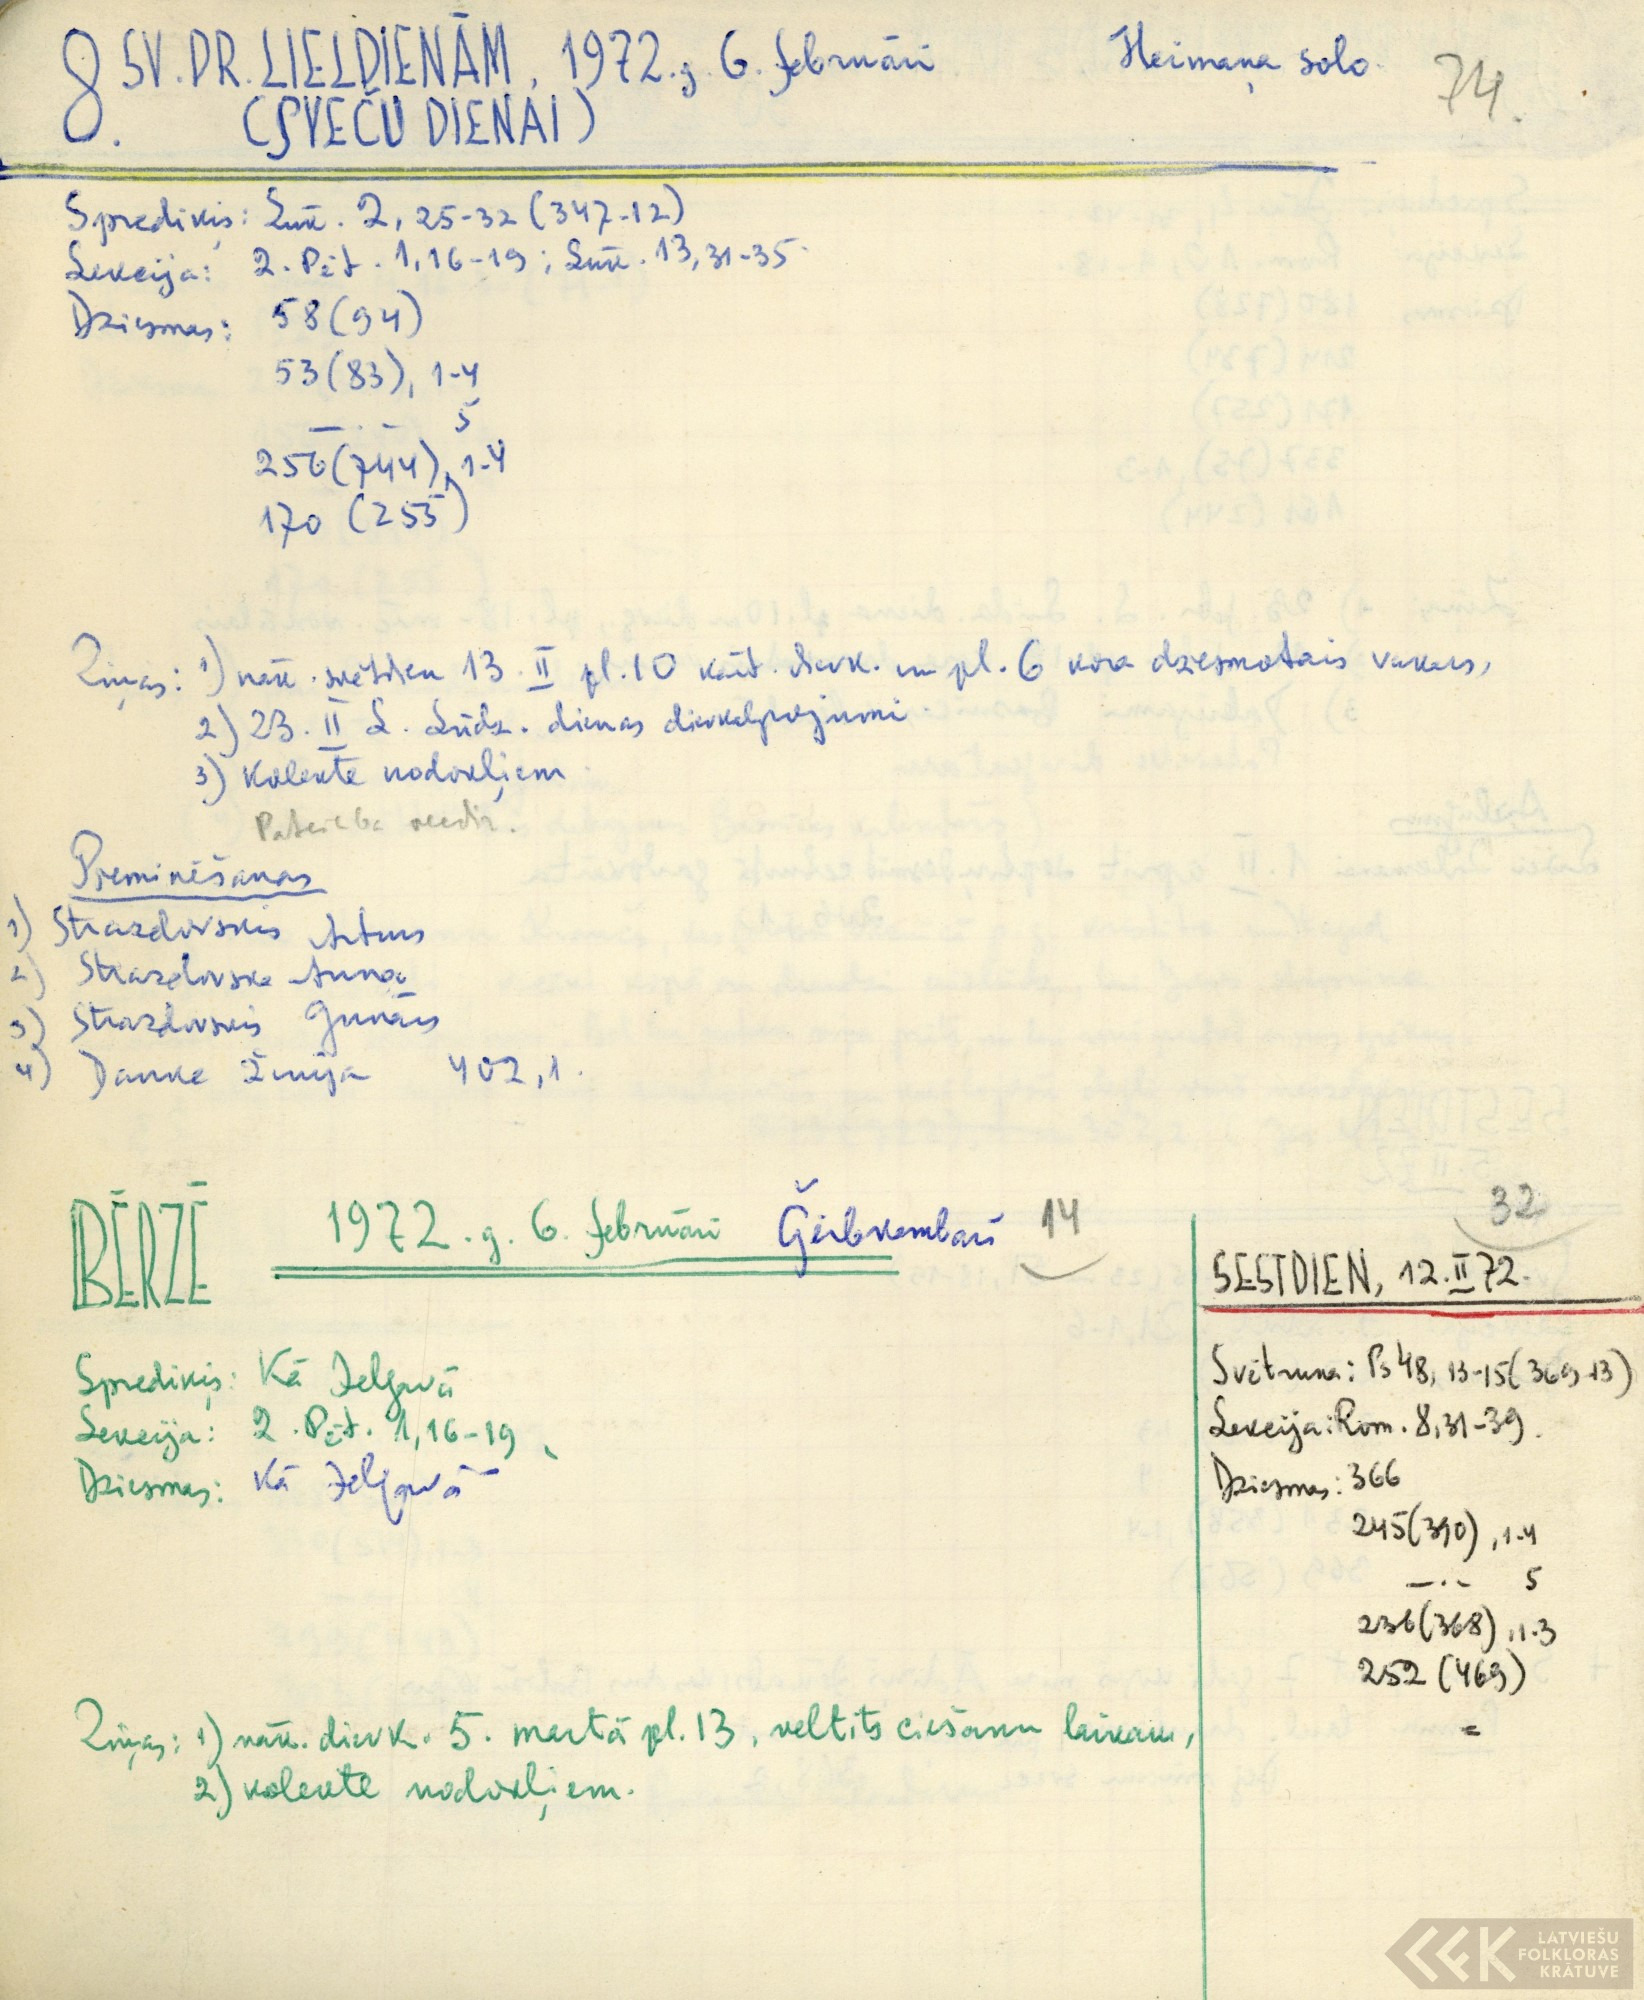 8. SV. PR. LIELDIENĀM, 1972. g. 6. februāri Heimaņa solo. 74.
(SVEČU DIENAI)
Sprediķis: Lūk. 2, 25-32 (347-12)
Lekcija: 2. Pēt. 1, 16-19; Lūk. 13, 31-35.
Dziesmas: 58 (94)
53 (83), 1-4
—.— 5
256 (744), 1-4
170 (255)
Ziņas: 1) nāk. svētdien 13. II pl. 10 kārt. dievk. un pl. 6 kora dziesmotais vakars,
2) 23. II L. Lūdz. dienas dievkalpojumi
3) Kolekte nodokļiem.
Pateicība
Pieminēšanas
1) Strazdovskis Arturs
2) Strazdovska Anna
3) Strazdovskis Gunārs
4) Danke Zenija 402, 1.
BĒRZĒ 1972. g. 6. februāri 14
Sprediķis: Kā Jelgavā
Lekcija: 2. Pēt. 1, 16-19.
Dziesmas: Kā Jelgavā
Ziņas: 1) nāk. dievk. 5. martā pl. 13, veltīts ciešanu laikam,
2) kolekte nodokļiem.
32
SESTDIEN, 12. II 72.
Svētruna: Ps 48, 13-15 (369-13)
Lekcija: Rom. 8, 31-39.
Dziesmas: 366
245 (390), 1-4
—.— 5
236 (368), 1-3
252 (469)
=
LATVIEŠU
FOLKLORAS
KRĀTUVE